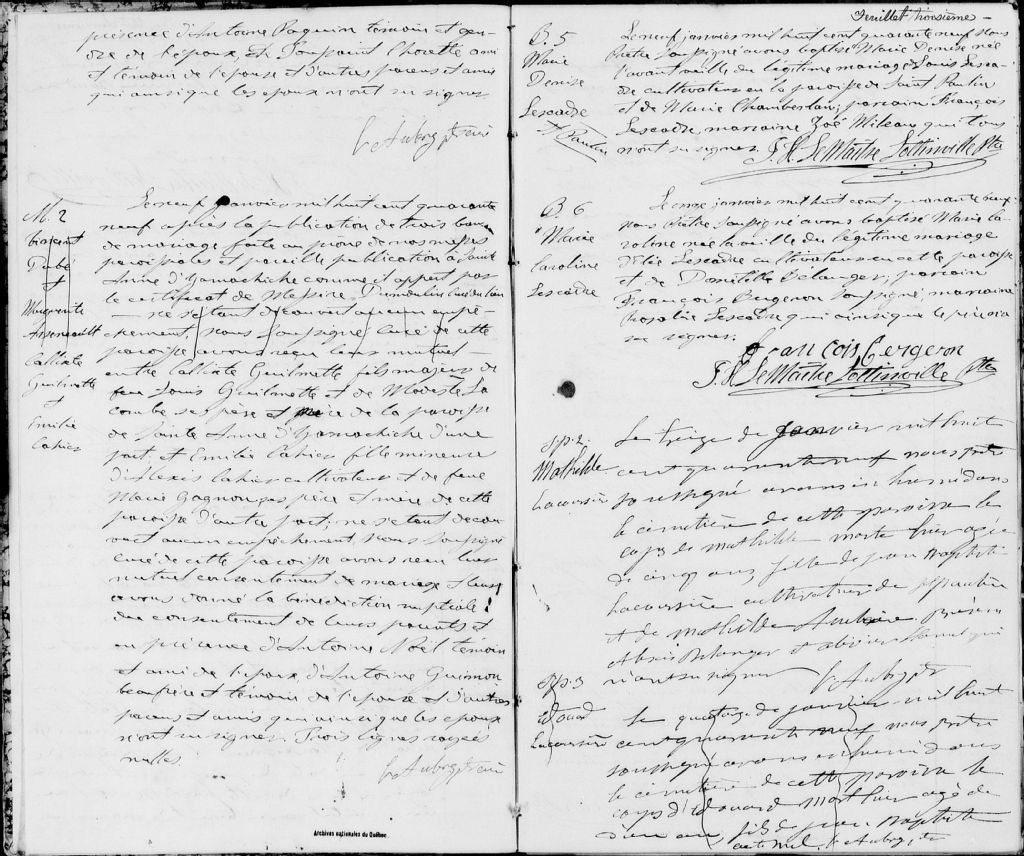 présence d'Antoine Paquin témoin et gen-
dre de l'épouse, et Toussaint Chorette ami
et témoin de l'épouse et d'autres parens et amis
qui ainsi que les époux n'ont su signer.
M. 2
Dubé
&
Marguerite
Arseneault
Calliste
Guilmette
&
Emilie
Cahier
Le neuf Janvier mil huit cent quarante
neuf après la publication de trois bans
de mariage faite au prone de nos messes
paroissiales et pareille publication à Sainte
Anne d'Yamachiche comme il appert par
le certificat de Messire Dumoulin Curé du lieu
— ne s'étant découvert aucun empê-
chement, Nous Soussigné Curé de cette
paroisse avons reçu leur mutuel —
entre Calliste Guilmette fils majeur de
feu Louis Guilmette et de Modeste La
combe ses père et mère de la paroisse
de Sainte Anne d'Yamachiche d'une
part, et Emilie Cahier fille mineure
d'Alexis Cahier cultivateur et de feue
Marie Gagnon ses père et mère de cette
paroisse d'autre part; ne s'étant décou-
vert aucun empêchement Nous soussigné
curé de cette paroisse avons reçu leur
mutuel consentement de mariage et leur
avons donné la bénédiction nuptiale
du consentement de leurs parents et
en présence d'Antoine Noël témoin
et ami de l'époux d'Antoine Guimon
beaufrère et témoin de l'épouse et d'autres
parens et amis qui ainsi que les époux
n'ont su signer. Trois lignes rayées
nulles.
Archives nationales du Québec
Feuillet troisième —
B. 5
Marie
Denise
Lescadre
St Paulin
Le neuf janvier mil huit cent quarante neuf Nous
Prêtre Soussigné avons baptisé Marie Denise née
l'avant veille du légitime mariage de Louis Lesca-
dre cultivateur en la paroisse de Saint Paulin
et de Marie Chamberlan; parrain François
Lescadre, marraine Zoé Mileau qui tous
n'ont su signer. LeMaitre Lottinville Ptre
B. 6
Marie
Caroline
Lescadre
Le onze janvier mil huit cent quarante neuf
Nous Prêtre Soussigné avons baptisé Marie Ca-
roline née la veille du légitime mariage
d'Elie Lescadre cultivateur en cette paroisse
et de Domitille Bélanger; parrain
François Bergeron soussigné marraine
Rosalie Lescadre qui ainsi que le père n'a
su signer.
François Bergeron
LeMaitre Lottinville Ptre
Sp. 2.
Mathilde
Lacoursière
Le treize de Janvier mil huit
cent quarante neuf nous prêtre
soussigné avons inhumé dans
le cimetière de cette paroisse le
corps de Mathilde morte hier agée
de cinq ans, fille de Jean Baptiste
Lacoursière cultivateur de St Paulin
et de Mathilde
Alexis Belanger et
n'ont su signer
Sp. 3
Edouard
Lacoursière
Le quatorze de janvier mil huit
cent quarante neuf nous prêtre
soussigné avons inhumé dans
le cimetière de cette paroisse le
corps d'Edouard mort hier agé de
d'un an, fils de Jean Baptiste